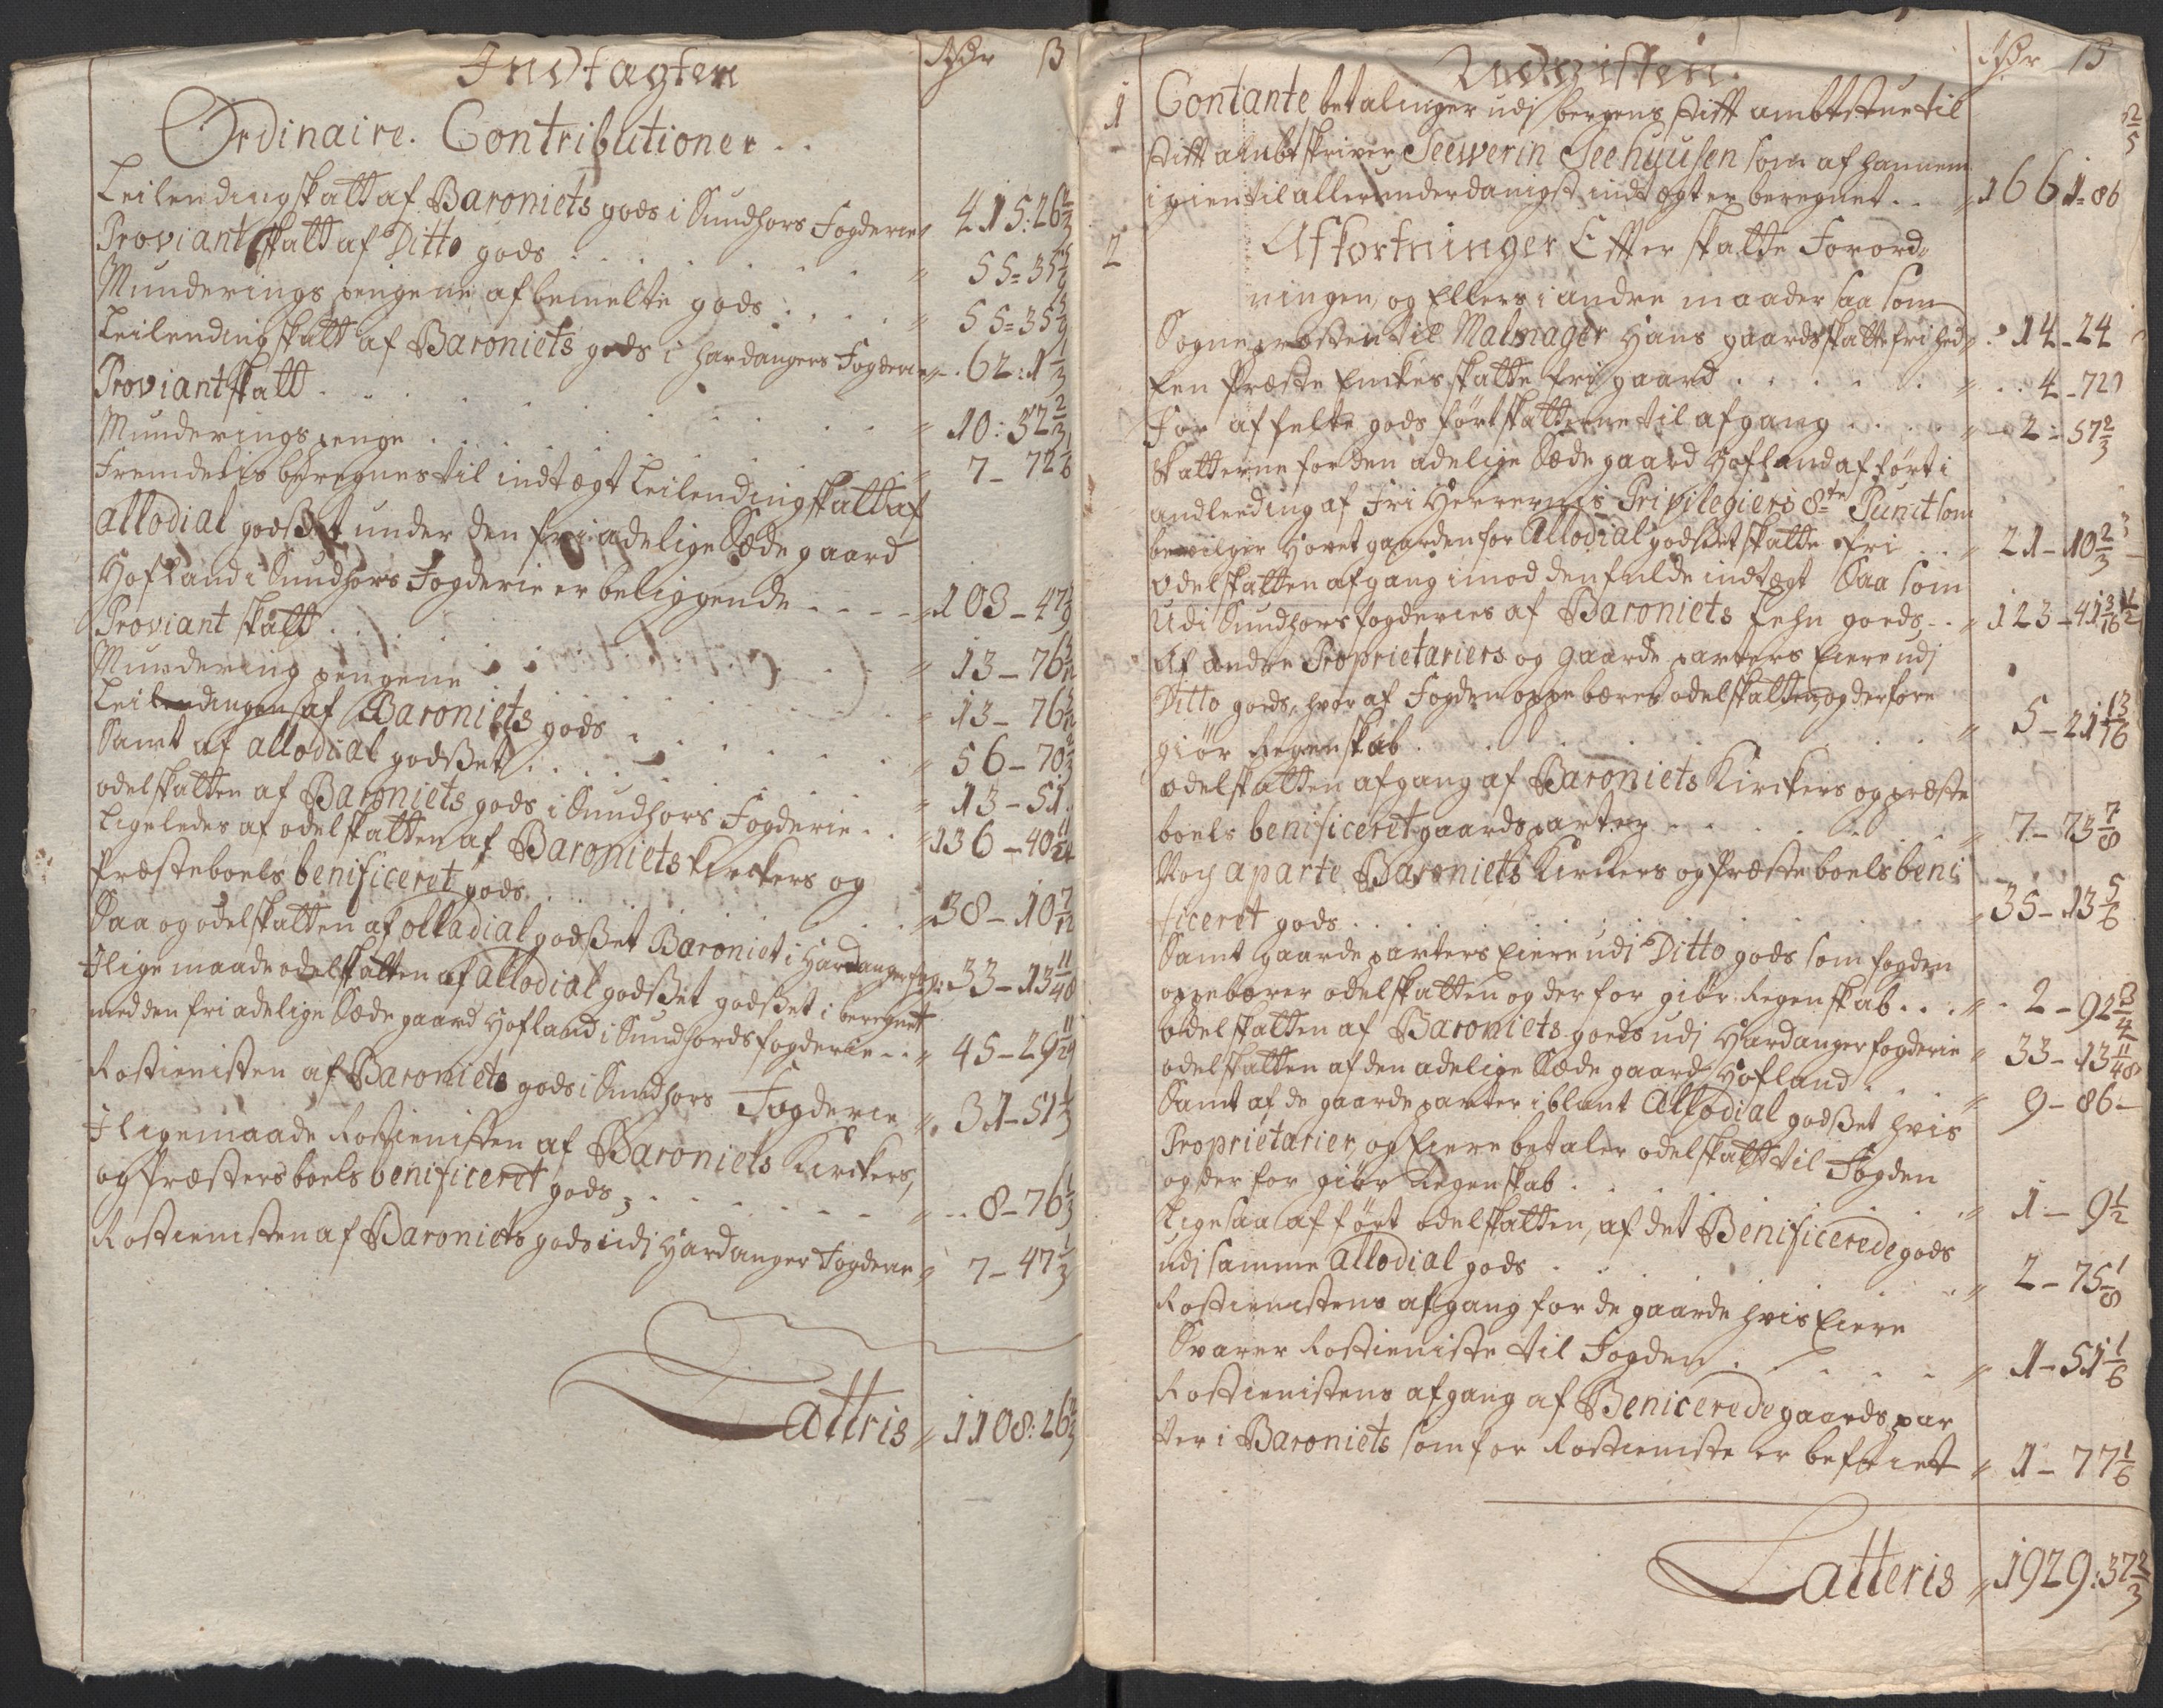 Indtagten
Rdr ß
Ordinaire. Contributioner . .
Leilendingskatt af Baroniets gods i Sundhors Fogderie 415:26 2/3
Proviant skatt af Ditto gods . . . . . . " 55=35 5/9
Munderings pengene af bemelte gods . . . . " 55=35 5/9
Leilendingskatt af Baroniets gods i Hardangers Fogderie " 62:1 1/3
Proviantskatt . . . . . . . " 10:32 2/3
Munderings penge . . . . . . " 7_72 1/6
Fremdelis beregnes til indtægt Leilendingskatt af
allodial godset under den fri adelige Sæde gaard
Hofland i Sundhors Fogderie er beliggende - - - - " 103_47
Proviant skatt . . . . . . " 13_76
Mundering pengene . . . . . . " 13_76
Leilendingen af Baroniets gods . . . . . " 56_70
Samt af allodial godset . . . . . " 13_51
odelskatten af Baroniets gods i Sundhors Fogderie . . " 136_40 11/24
Ligeledes af odelskatten af Baroniets Kirckers og
Præsteboels benificeret gods . . . . . . " 38_10 7/12
Saa og odelskatten af olladial godset Baroniet i Hardanger fog: 33_13 11/48
Ilige maade odelskatten af allodial godset godset i beregnet
med den fri adelige Sæde gaard Hofland i Sundhords fogderie . . " 45_29 11/24
Rostienisten af Baroniets gods i Sundhors Fogderie " 31_51 1/3
I ligemaade Rostienisten af Baroniets Kirckers,
og Præsters boels benificeret gods, . . . . . . " 8_76 1/3
Rostienisten af Baroniets gods udj Hardanger Fogderie " 7_47 1/3
Lattris " 1108:26 2/3
Udgiften.
Rdr ß
1 Contante betalinger udj bergens stift ambtstue til
stift ambtskriver Seewerin Seehuusen som af hannem
igien til allerunderdanigst indtægter beregnet . . " 1661=86 2/5
2 Afkortninger Efter skatte Forord=
ningen, og Ellers i andre maader saa som
Sognepresten til Malmager Hans gaards skatte frihed " 14_24
Een Præste Enckes skatte fri gaard . . . . . . " 4_72
For affelte gods ført skatterne til afgang . . . . " 2_57 2/3
Skatterne for den adelige Sæde gaard Hofland afført i
andleeding af Fri Herrernes Privilegiers 8te Punct som
bevilger Hovetgaarden for Allodial godset skatte fri . . " 21_10 2/3
Odelskatten afgang imod den fulde indtægt Saa som
Udi Sundhors fogderies af Baroniets Lehn goeds . . " 123_41 3/16
Af andre Proprietariers og gaarde parters Eiere udj
Ditto goeds, hvor af Fogden oppebærer odelskatten og derfore
giør Regenskab . . . . . . . " 5_21 13/16
odelskatten afgang af Baroniets Kirckers og præste
boels benificeret gaards parter . . . . . . " 7_73 7/8
Noch aparte Baroniets Kirckers og Præsteboels beni
ficeret gods . . . . . . . " 35_13 5/6
Samt gaarde parters Eiere udj Ditto gods som fogden
oppebærer odelskatten og derfor giør Regenskab . . . " 2_92 3/4
odelskatten af Baroniets goeds udj Hardanger fogderie " 33_13 11/48
odelskatten af den adelige Sæde gaard Hofland . . . " 9_86_
Samt af de gaarde parter iblant Allodial godset hvis
Proprietarier, og Eiere betaler odelskatt til Fogden
og der for giør Regenskab . . . . . . " 1_9 1/2
Ligesaa afført odelskatten, af det Benificerede gods
udj samme Allodial gods . . . . . . " 2_75 1/8
Rostienistens afgang for de gaarde hvis Eiere
Svarer Rostieniste til Fogden . . . . . " 1_51 1/6
Rostienistens afgang af Benicerede gaards par
ter i Baroniets som for Rostieniste er befriet " 1_77 1/6
Latteris " 1929:37 2/3